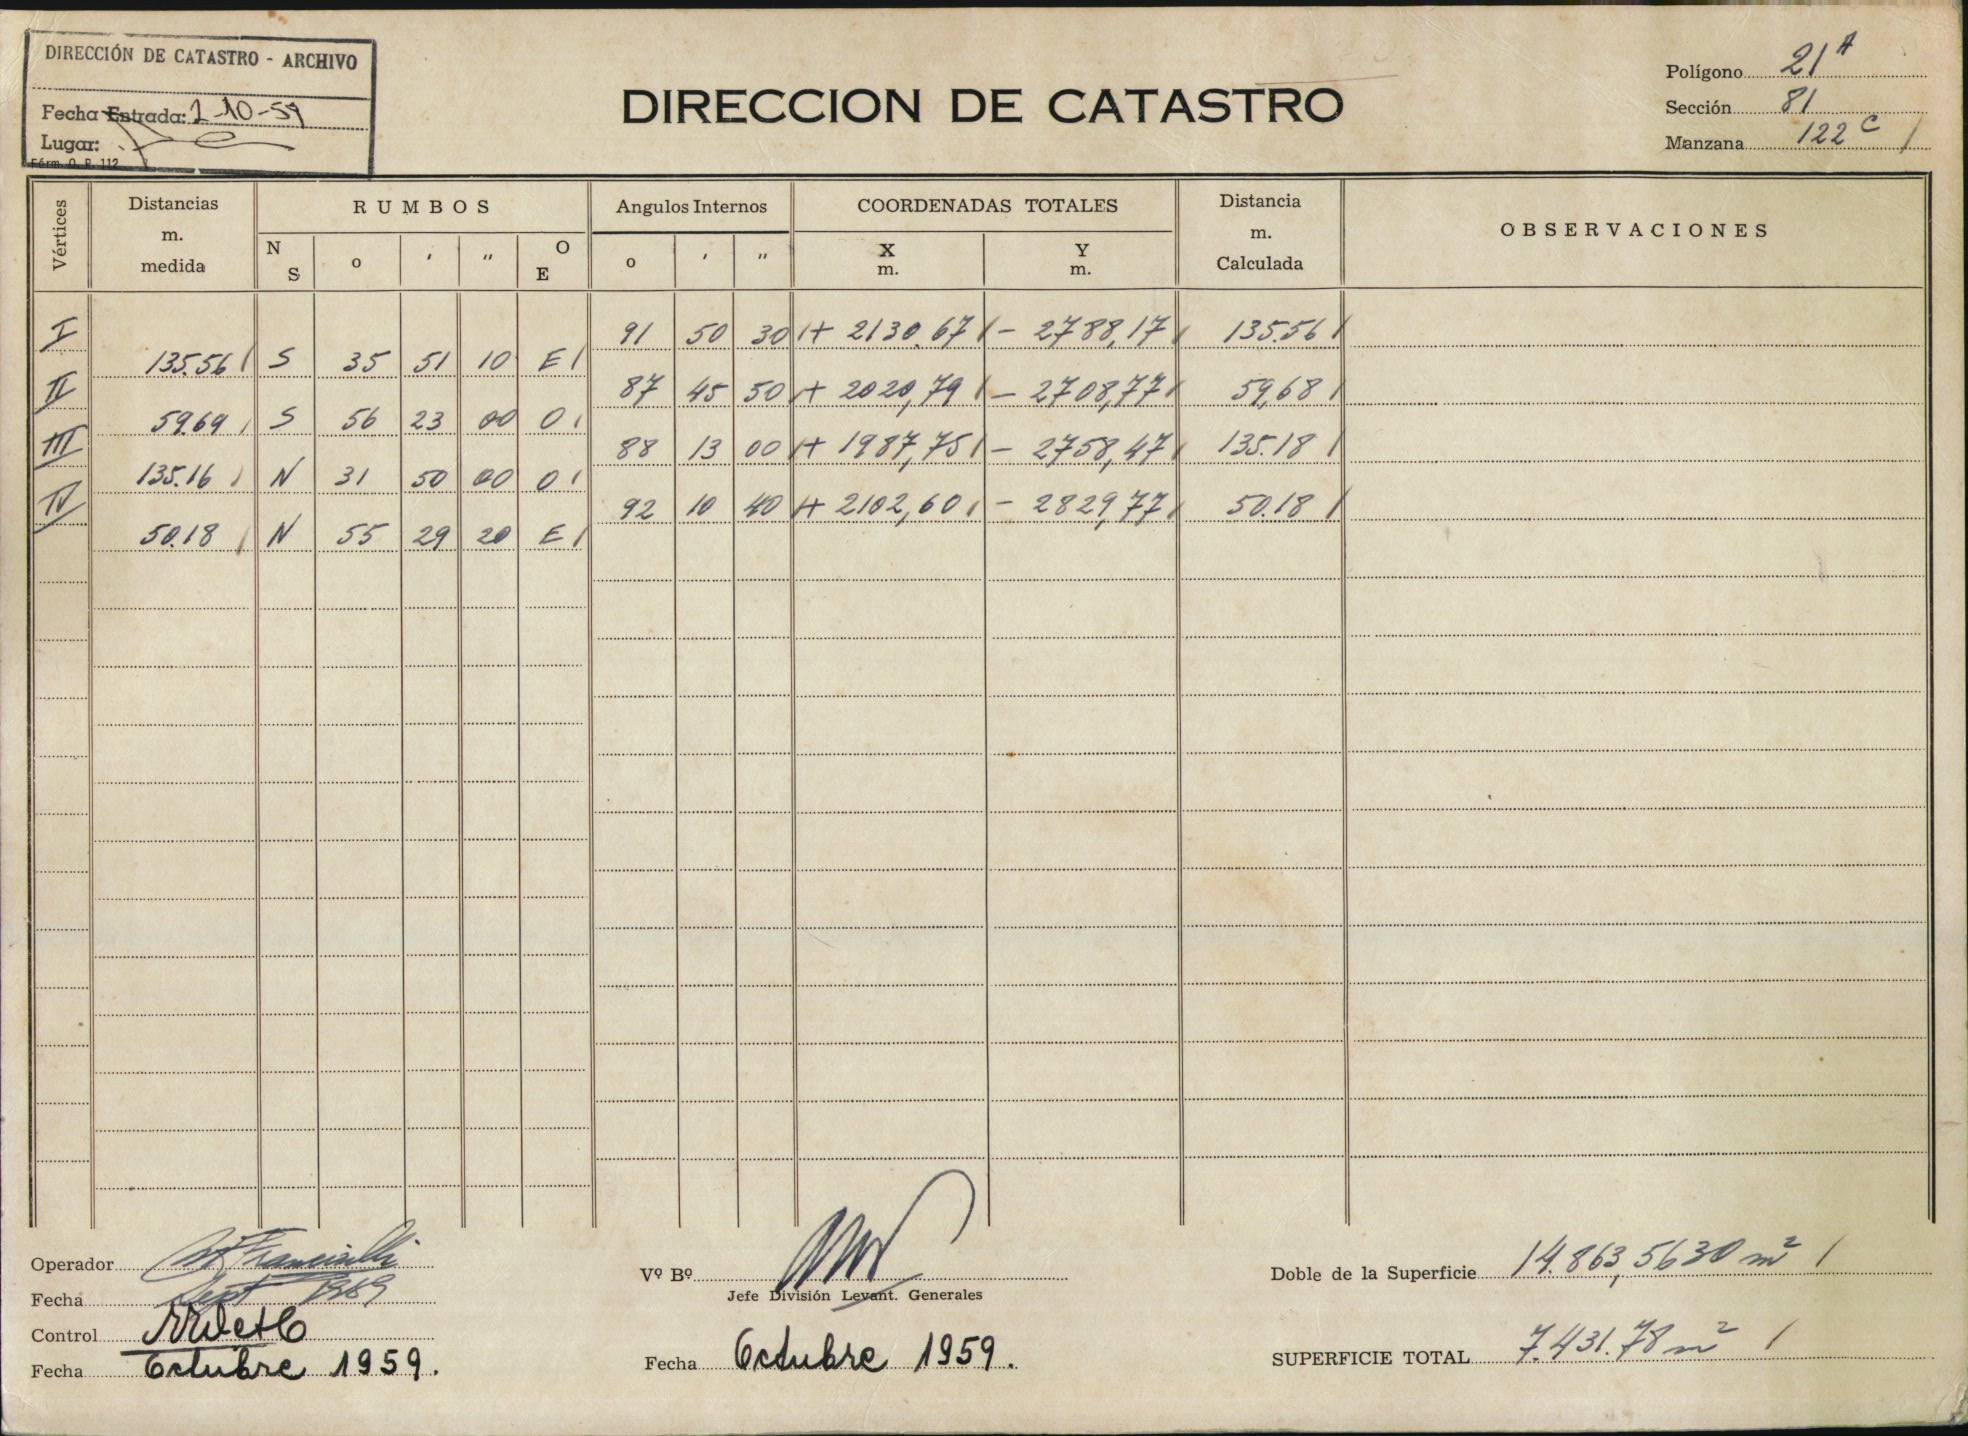 DIRECCIÓN DE CATASTRO - ARCHIVO
Fecha Entrada: 2-10-59
Lugar:
Fórm. O. P. 112
DIRECCION DE CATASTRO
Polígono 21 A
Sección 81
Manzana 122 C
Vértices
Distancias m. medida
RUMBOS
N S o ' " O E
Angulos Internos
o ' "
COORDENADAS TOTALES
X m. Y m.
Distancia m. Calculada
OBSERVACIONES
I 91 50 30 + 2130.67 - 2788,17 135.56
135.56 S 35 51 10 E
II 87 45 50 + 2020,79 - 2708,77 59,68
59.69 S 56 23 00 O
III 88 13 00 + 1987,75 - 2758,47 135.18
135.16 N 31 50 00 O
IV 92 10 40 + 2102,60 - 2829,77 50.18
50.18 N 55 29 20 E
Operador
Fecha Sept 1959
Control
Fecha Octubre 1959.
Vº Bº
Jefe División Levant. Generales
Fecha Octubre 1959.
Doble de la Superficie 14.863,5630 m²
SUPERFICIE TOTAL 7.431.78 m²